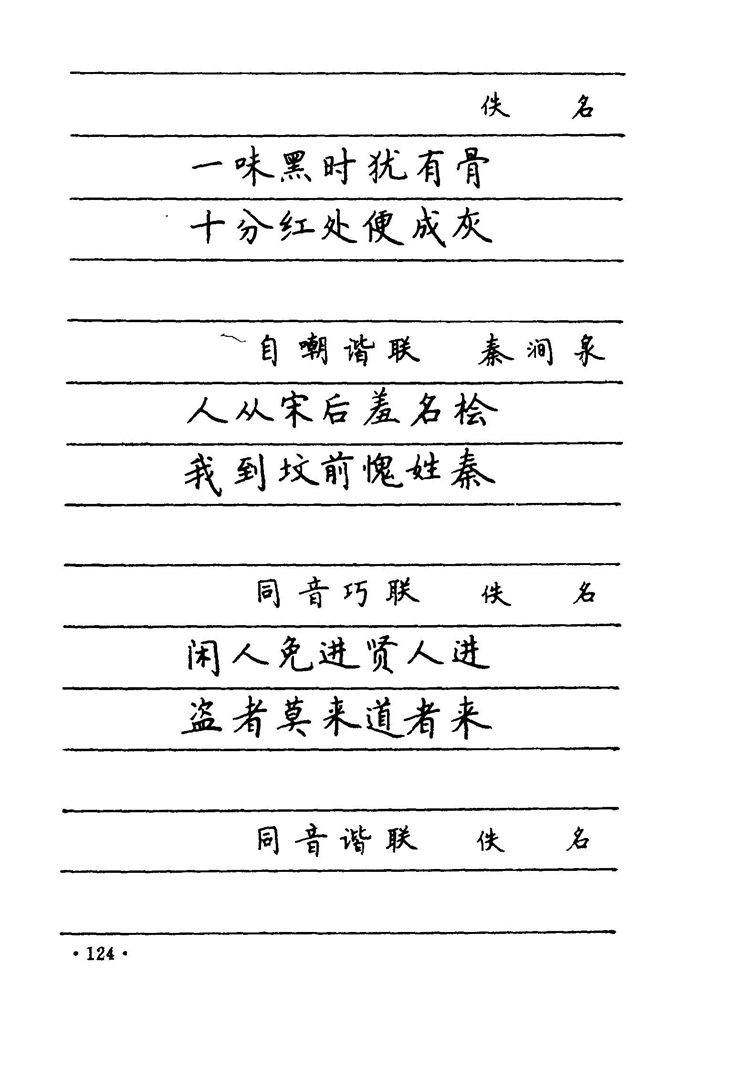 佚 名
一味黑时犹有骨
十分红处便成灰
自嘲谐联 秦涧泉
人从宋后羞名桧
我到坟前愧姓秦
同音巧联 佚 名
闲人免进贤人进
盗者莫来道者来
同音谐联 佚 名
·124·